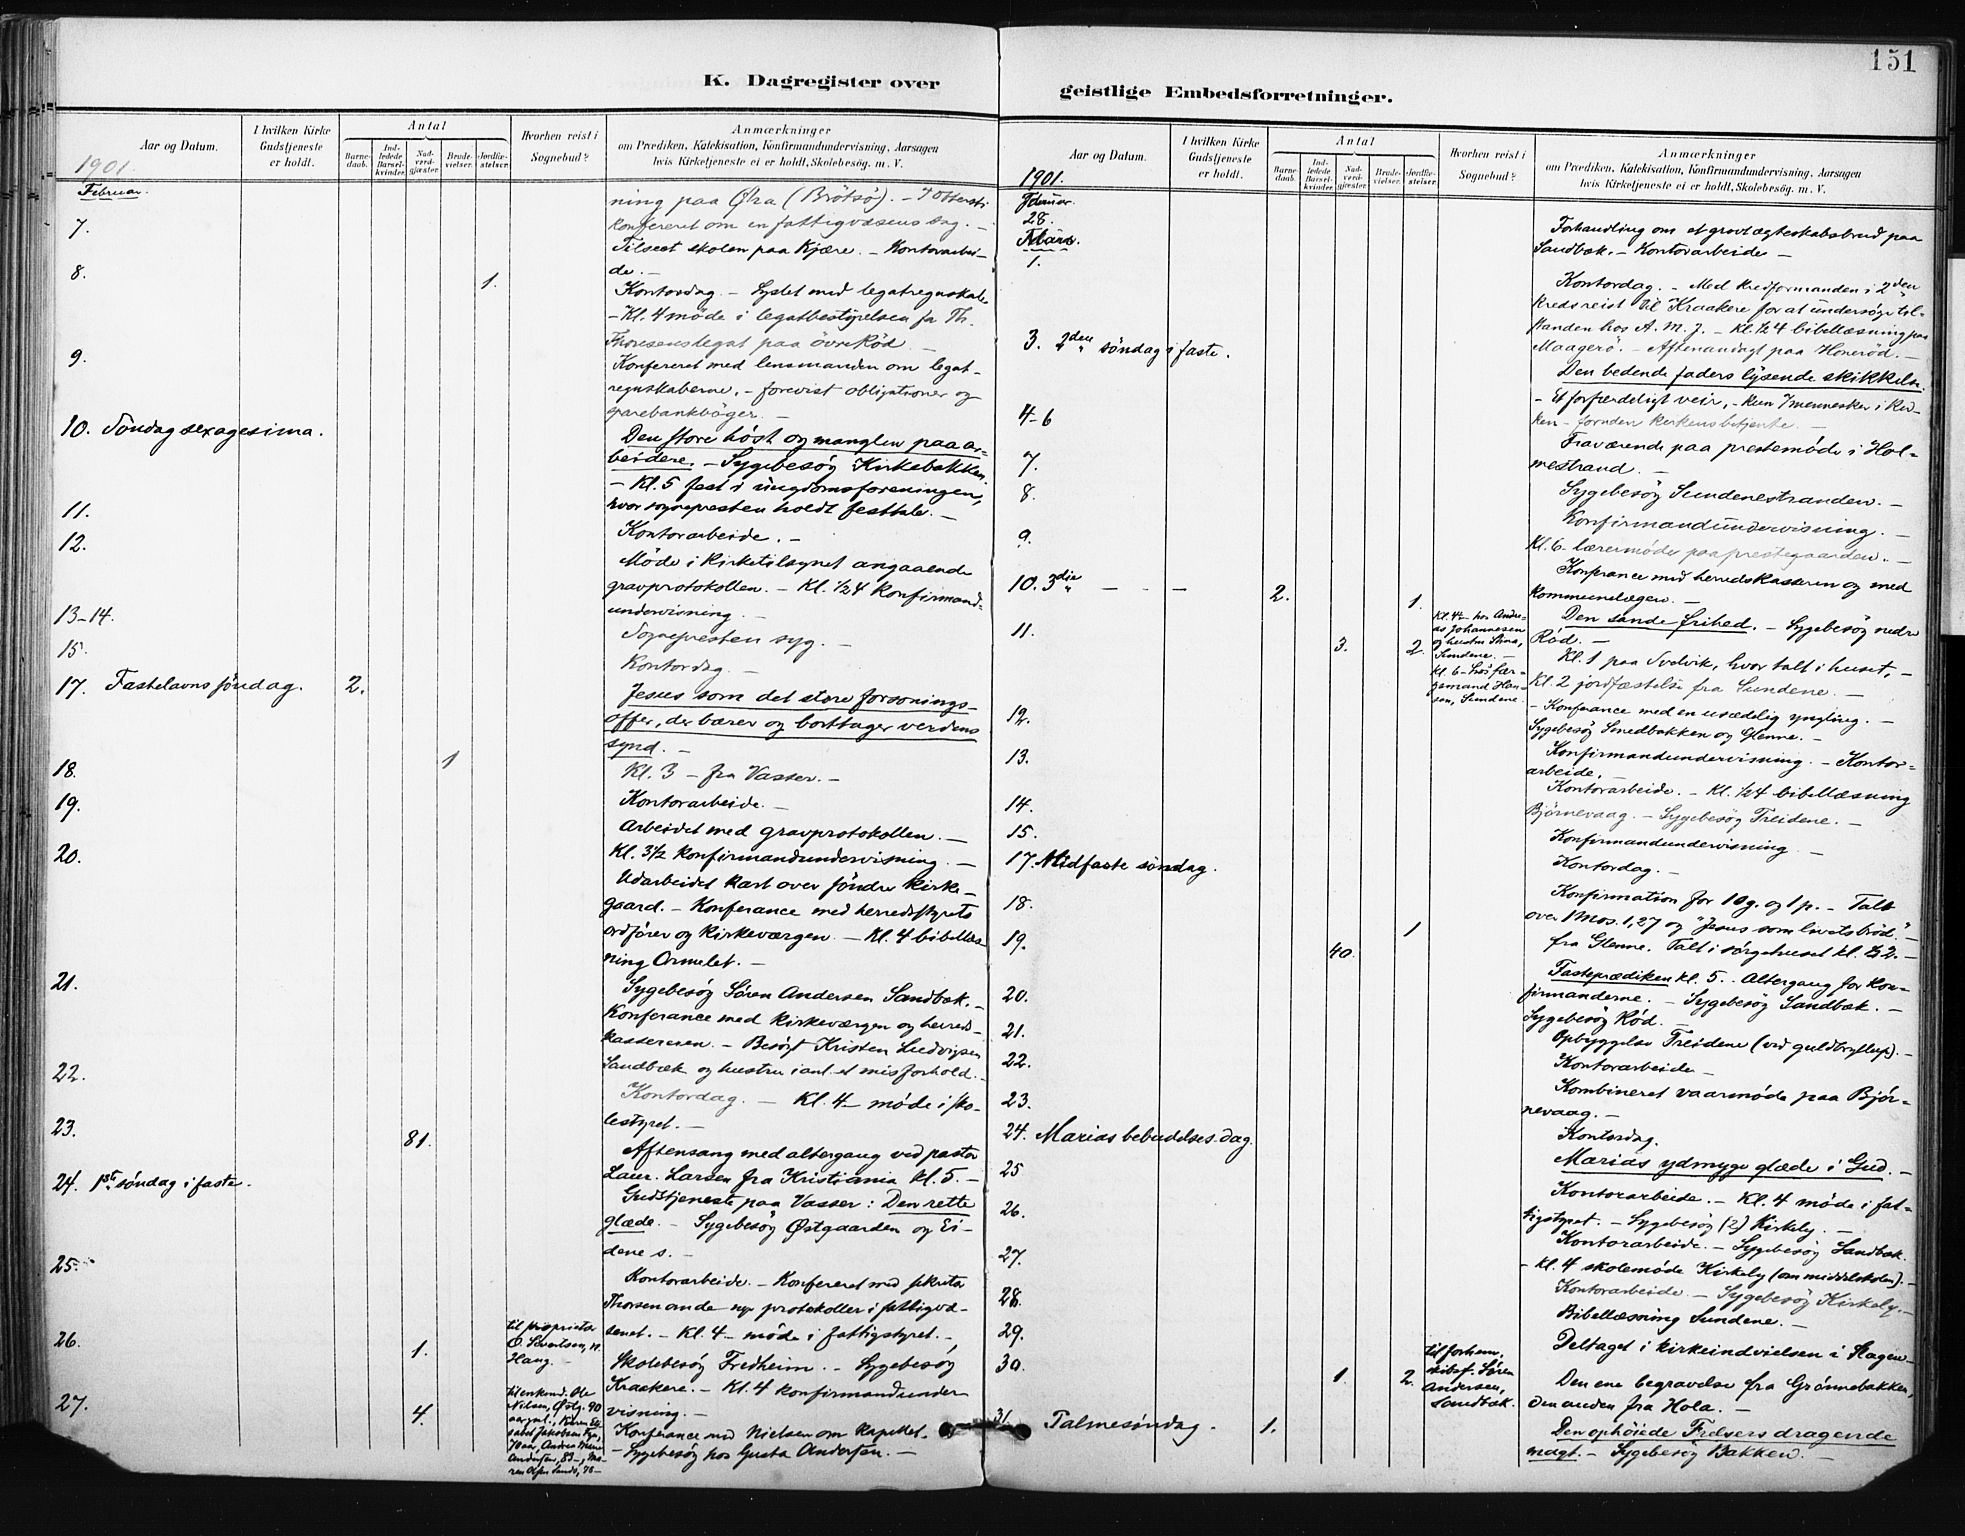 K. Dagregister over
Aar og Datum.
I hvilken Kirke Gudstjeneste er holdt.
Antal
Barnedaab.
Indledede Barselkvinder.
Nadverdgjæster.
Brudevielser.
Jordfæstelser.
Hvorhen reist i Sognebud?
Anmærkninger
om Prædiken, Katekisation, Konfirmandundervisning, Aarsagen
hvis Kirketjeneste ei er holdt, Skolebesøg. m. V.
1901.
Februar.
ning paa Øra (Brötsö).
Konfereret om en fattigvæsens sag. —
7.
Tilseet skolen paa Kjære. — Kontorarbei-
de. —
8. 1.
Kontordag. — Syslet med legatregnskab.
— Kl. 4 möde i legatbestyrelsen for Th.
Thoresens legat paa övre Röd. —
9.
Konfereret med lensmanden om legat-
regnskaberne, — forevist obligationer og
sparebankböger. —
10. Söndag sexagesima.
Den store höst og manglen paa ar-
beidere. — Sygebesög Kirkebakken.
— Kl. 5 fest i ungdomsforeningen,
hvor sognepresten holdt festtale. —
11.
Kontorarbeide. —
12.
Möde i kirketilsynet angaaende
gravprotokollen. — Kl. 1/24 konfirmand-
undervisning. —
13-14.
Sognepresten syg. —
15.
Kontordag —
17. Fastelavns söndag. 2.
Jesus som det store forsonings-
offer, der bærer og borttager verdens
synd. —
18. 1
Kl. 3 — fra Vasser. —
Kontorarbeide. —
19.
Arbeidet med gravprotokollen. —
Kl. 3 1/2 konfirmandundervisning. —
20.
Udarbeidet kart over söndre kirke-
gaard. — Konferance med herredsstyrets
ordförer og kirkeværgen. — Kl. 4 bibellæs-
ning Ormelet. —
21.
Sygebesög Sören Andersen Sandbæk. —
Konferance med kirkeværgen og herreds-
kassereren. — Besögt Kristen Ludvigsen
Sandbæk og hustru i anl. et misforhold. —
22.
Kontordag. — Kl. 4 — möde i sko-
lestyret. —
23. 81.
Aftensang med altergang ved pastor
Laur. Larsen fra Kristiania kl. 5. —
24. 1ste söndag i faste.
Gudstjeneste paa Vasser: Den rette
glæde. — Sygebesög Østgaarden og Ei-
denes. —
25.
Kontorarbeide. — Konfereret med sekretær
Thorsen om de nye protokoller i fattigvæ-
senet. — Kl. 4 — möde i fattigstyret. —
26. 1.
til proprietær
O. Sivertsen, n.
Haug.
Skolebesög Fredheim. — Sygebesög
Kraakere. — Kl. 4 konfirmandunder-
visning. —
27. 4.
til enkemd. Ole
Nilsen, Østg. 90
Konferance med Nielsen om kapellet.
— Sygebesög hos Gusta Andersen. —
151
geistlige Embedsforretninger.
Aar og Datum.
I hvilken Kirke Gudstjeneste er holdt.
Antal
Barnedaab.
Indledede Barselkvinder.
Nadverdgjæster
Brudevielser.
Jordfæstelser.
Hvorhen reist i Sognebud?
Anmærkninger
om Prædiken, Katekisation, Konfirmandundervisning, Aarsagen
hvis Kirketjeneste ei er holdt, Skolebesøg. m. V.
1901.
Februar.
28.
Forhandling om et grovt ægteskabsbrud paa
Sandbæk. — Kontorarbeide —
Marts.
1.
Kontordag. — Med kredsformanden i 2den
kreds reist til Kraakere for at undersöge til-
standen hos A. M. J. — Kl. 1/24 bibellæsning paa
Maagerö. — Aftenandagt paa Honeröd. —
3. 2den söndag i faste.
Den bedende faders lysende skikkelse.
— Et forfærdeligt veir, — kun 7 mennesker i kir-
ken — foruden kirkens betjente. —
4-6
Fraværende paa prestemöde i Hol-
mestrand. —
7.
Sygebesög Sundenestranden. —
8.
Konfirmandundervisning. —
Kl. 6 — lærermöde paa prestegaarden. —
9.
Konferance med herredskasseren og med
kommunelægen. —
10. 3die — — 2. 1.
Den sande frihed. — Sygebesög nedre
Röd. —
11. 3. 2.
Kl. 4 1/2 hos Andre-
as Johannesen
og hustru Stina,
Sundene. —
Kl. 6 — hos fær-
gemand Han-
sen, Sundene.
Kl. 1 paa Svelvik, hvor talt i huset, —
Kl. 2 jordfæstelse fra Sundene. —
12.
— Konferance med en usædelig yngling. —
Sygebesög Smedbakken og Glenne. —
13.
Konfirmandundervisning. — Kontor-
arbeide. —
Kontorarbeide. — Kl. 1/24 bibellæsning
Björnevaag. — Sygebesög Treidene. —
14.
Konfirmandundervisning —
15.
Kontordag. —
17. Midfaste söndag.
Konfirmation for 10 g. og 1 p. — Talt
over 1 Mos. 1,27 og "Jesus som livets bröd." —
18. 1
fra Glenne. Talt i sörgehuset kl. 1/2 2. —
19. 40.
Fasteprædiken kl. 5. Altergang for kon-
firmanderne. — Sygebesög Sandbæk. —
Sygebesög Röd. —
20.
Opbyggelse Treidene (ved guldbryllup). —
21.
Kontorarbeide —
22.
Kombineret vaarmöde paa Björ-
nevaag. —
23.
Kontordag.
24. Marias bebudelses dag.
Marias ydmyge glæde i Gud. —
25
Kontorarbeide. — Kl. 4 möde i fat-
tigstyret. — Sygebesög (2) Kirkely. —
26.
Kontorarbeide. — Sygebesög Sandbæk.
— Kl. 4 skolemöde Kirkely (om middelskolen). —
27.
Kontorarbeide — Sygebesög Kirkely. —
28.
Bibellæsning Sundene. —
29.
Deltaget i kirkeindvielsen i Slagen —
30. 1. 2.
til forhen.
skibsf. Sören
Andersen,
Sandbæk.
Den ene begravelse fra Grönnebakken,
den anden fra Hola. —
31. Palmesöndag. 1.
Den ophöiede Frelsers dragende
magt. — Sygebesög Bakken. —